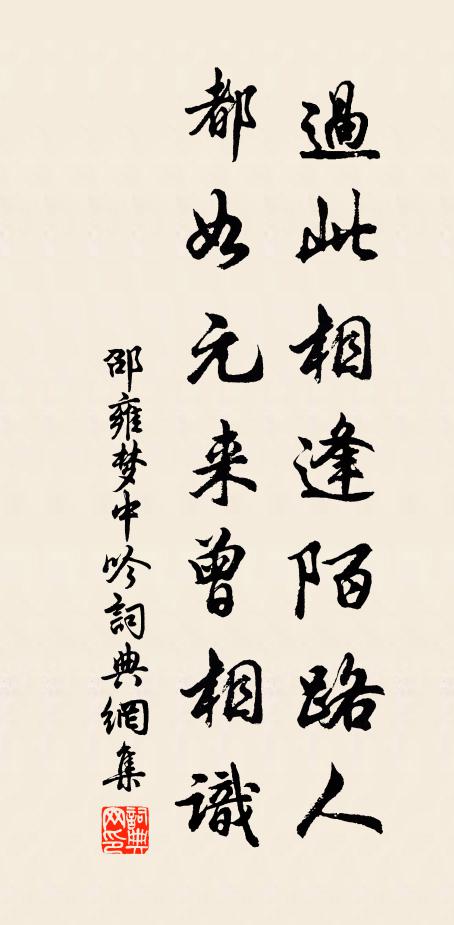 過此相逢陌路人
都如元来曾相識
邵雍梦中吟詞典網集
詞典网印